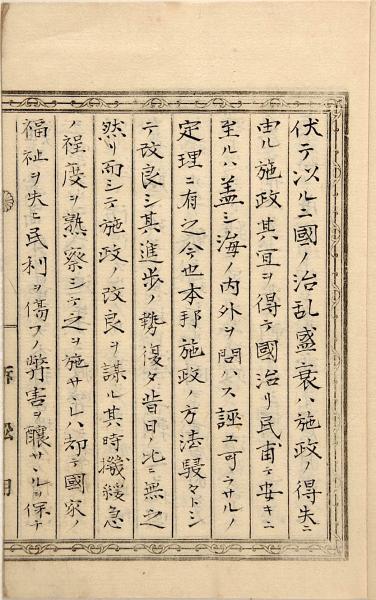 伏テ以ルニ國ノ治乱盛衰ハ施政ノ得失ニ
由ル施政其宜ヲ得テ國治リ民甫テ安キニ
至ルハ盖シ海ノ内外ヲ問ハス誣ユ可ラサルノ
定理ニ有之今也本邦施政ノ方法駸々トシ
テ改良シ其進歩ノ勢復タ昔日ノ比ニ無之
然リ而シテ施政ノ改良ヲ謀ル其時機緩急
ノ程度ヲ熟察シテ之ヲ施サヽレハ却テ國家ノ
福祉ヲ失ヒ民利ヲ傷フノ弊害ヲ醸サヽルヲ保テ
訴訟用